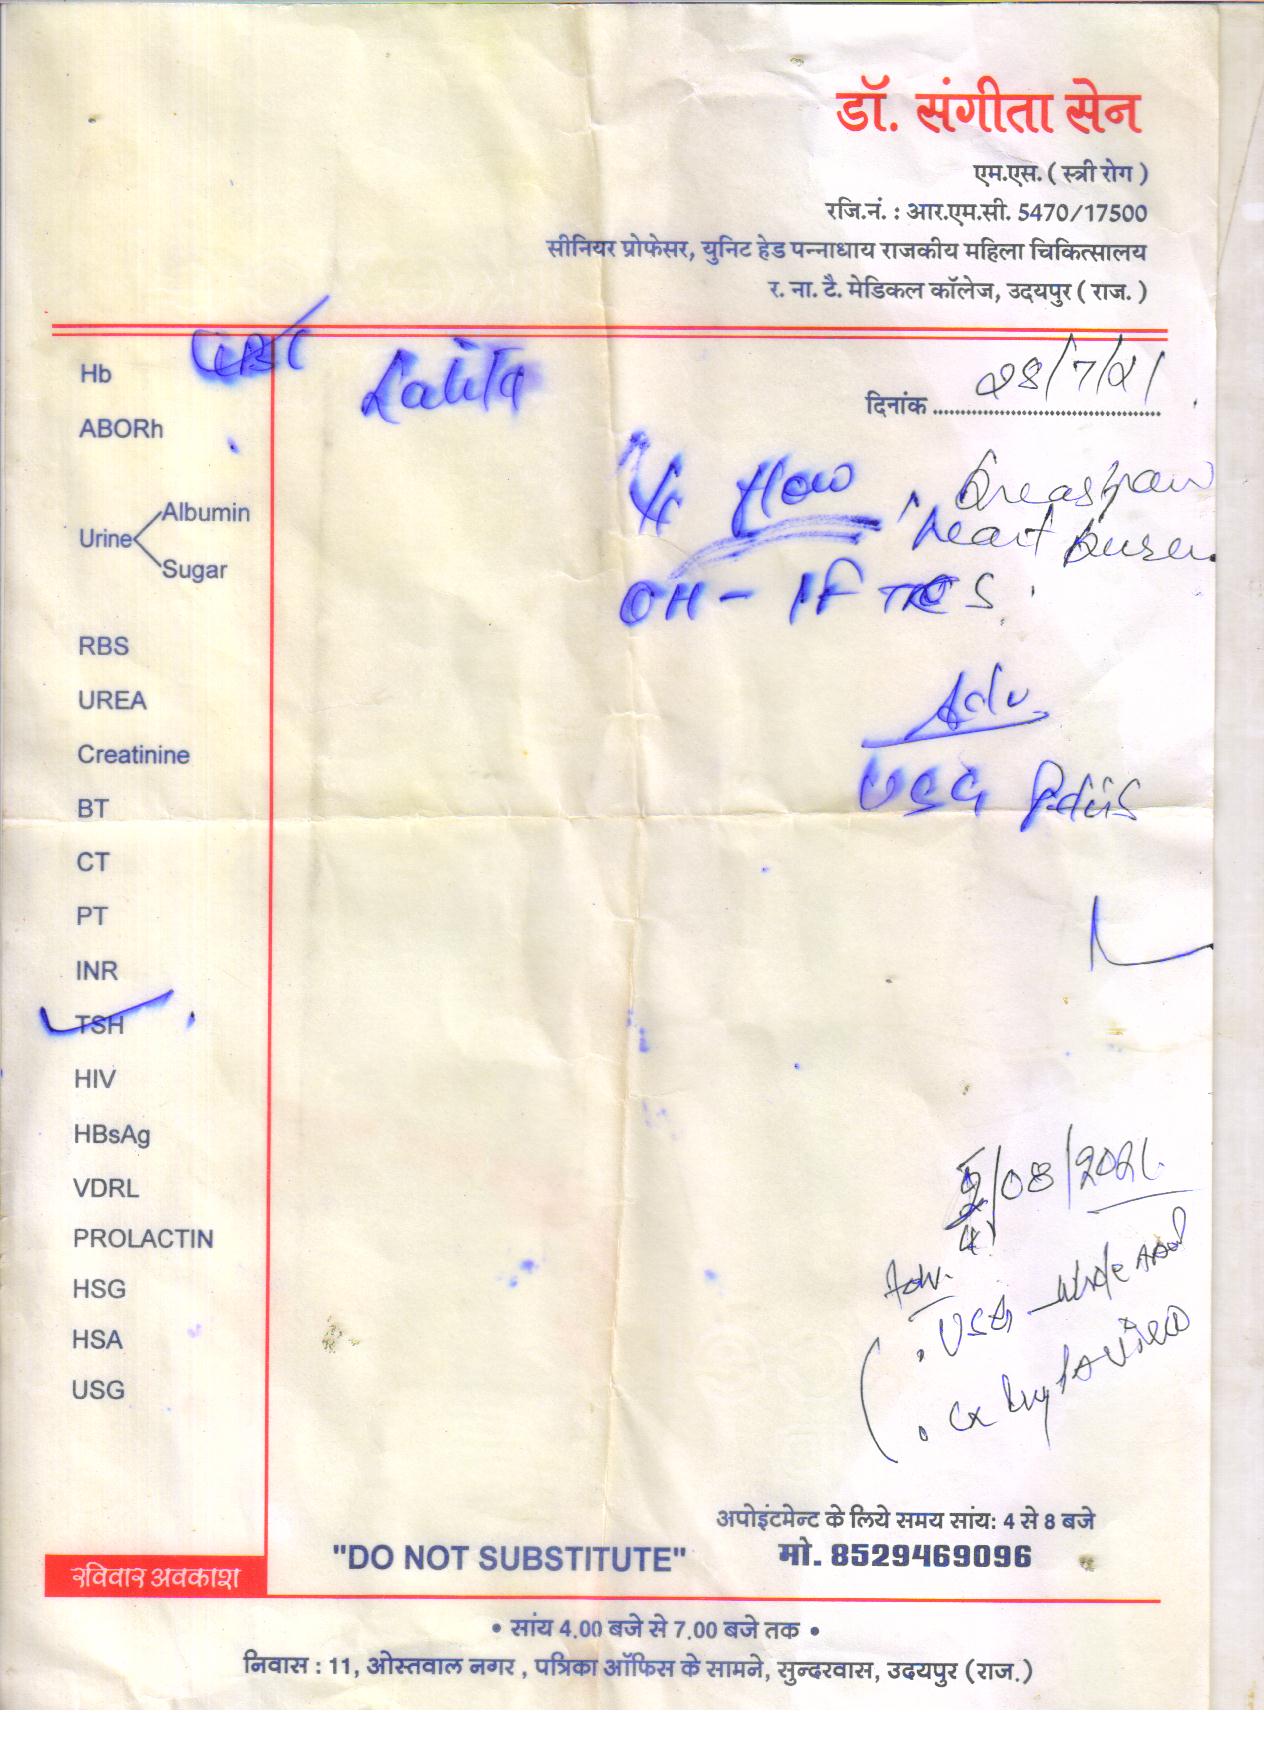 डॉ. संगीता सेन
एम.एस. ( स्त्री रोग )
रजि.नं. : आर.एम.सी. 5470/17500
सीनियर प्रोफेसर, युनिट हेड पन्नाधाय राजकीय महिला चिकित्सालय
र. ना. टै. मेडिकल कॉलेज, उदयपुर ( राज. )
CBC
Lalita
दिनांक 28/7/21
Hb
ABORh
Urine
Albumin
Sugar
flow
Breast pain
heart burn
OH - 1F
RBS
UREA
Creatinine
BT
CT
PT
INR
TSH
HIV
HBsAg
VDRL
PROLACTIN
HSG
HSA
USG
Adv.
USG Pelvis
/08/2021
Adv.
USG - whole Abd
अपोइंटमेन्ट के लिये समय सांय: 4 से 8 बजे
"DO NOT SUBSTITUTE"
मो. 8529469096
रविवार अवकाश
• सांय 4.00 बजे से 7.00 बजे तक •
निवास : 11, ओस्तवाल नगर , पत्रिका ऑफिस के सामने, सुन्दरवास, उदयपुर (राज.)